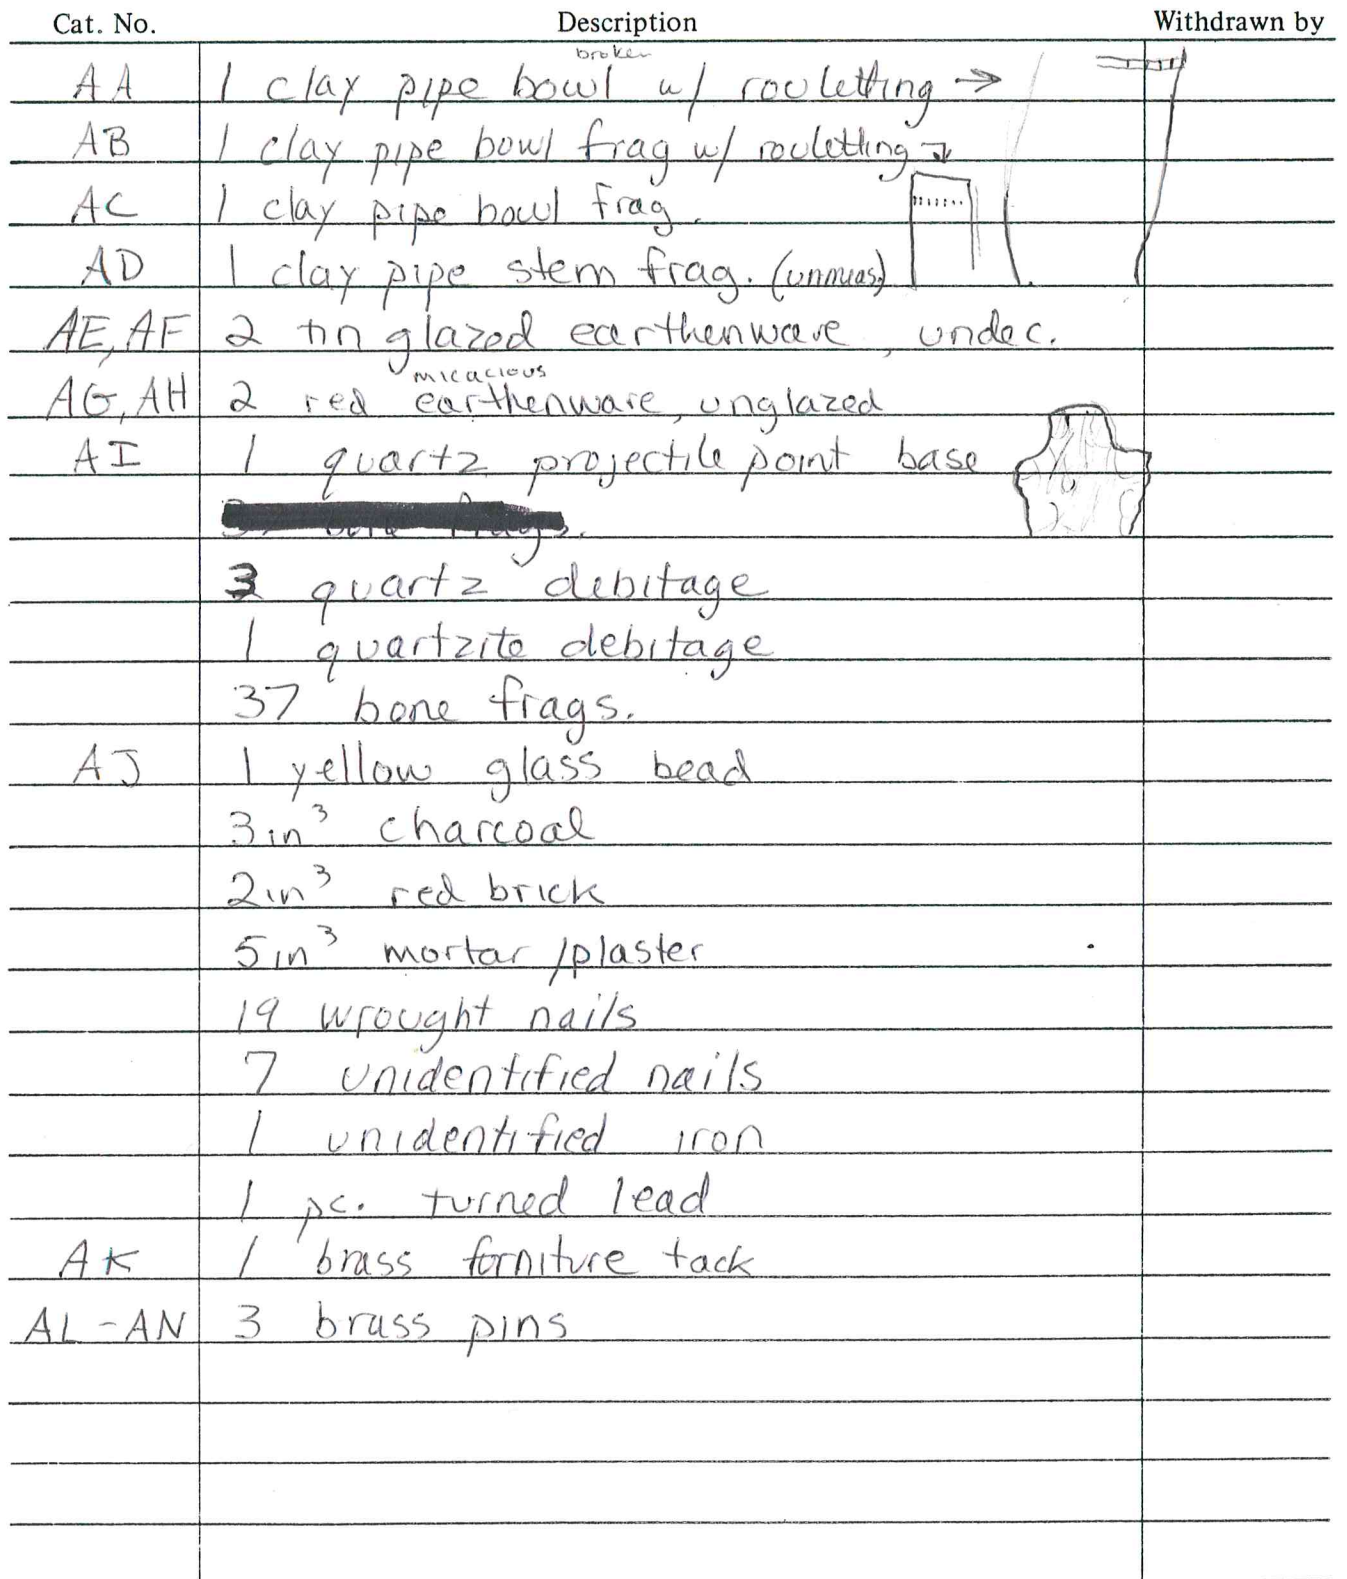 Cat. No. Description Withdrawn by
broken
AA 1 clay pipe bowl w/ rouletting →
AB 1 clay pipe bowl frag w/ rouletting ↴
AC 1 clay pipe bowl frag.
AD 1 clay pipe stem frag. (unmeas)
AE, AF 2 tin glazed earthenware, undec.
micacious
AG, AH 2 red earthenware, unglazed
AI 1 quartz projectile point base
3 quartz debitage
1 quartzite debitage
37 bone frags.
AJ 1 yellow glass bead
3in³ charcoal
2in³ red brick
5in³ mortar/plaster
19 wrought nails
7 unidentified nails
1 unidentified iron
1 pc. turned lead
AK 1 brass forniture tack
AL-AN 3 brass pins